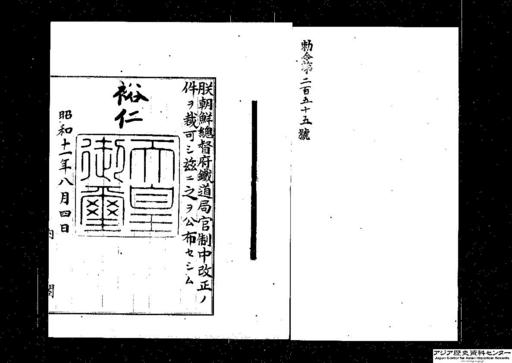 勅令第二百五十五號
朕朝鮮總督府鐵道局官制中改正ノ
件ヲ裁可シ茲ニ之ヲ公布セシム
裕仁
天皇
御璽
昭和十一年八月四日
内閣
アジア歴史資料センター
Japan Center for Asian Historical Records